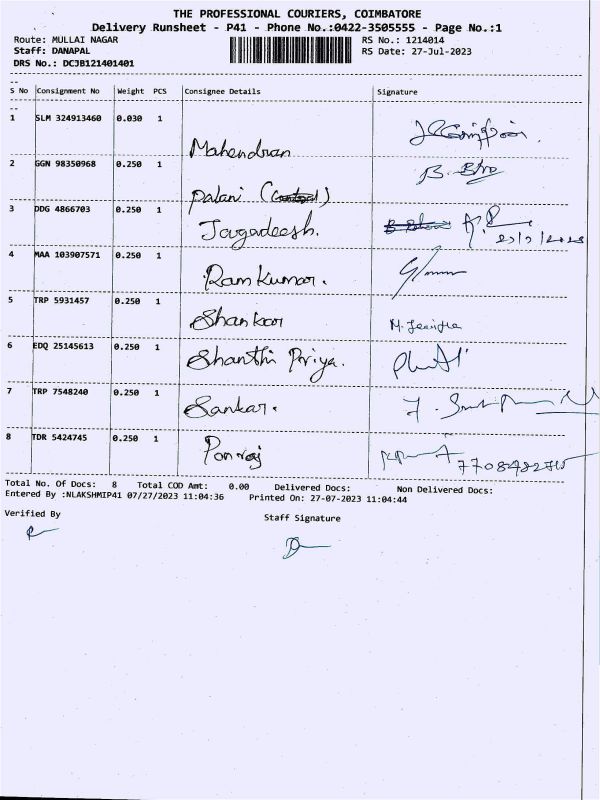 THE PROFESSIONAL COURIERS, COIMBATORE
Delivery Runsheet - P41 - Phone No.:0422-3505555 - Page No.:1
Route: MULLAI NAGAR RS No.: 1214014
Staff: DANAPAL RS Date: 27-Jul-2023
DRS No.: DCJB121401401
S No Consignment No Weight PCS Consignee Details Signature
1 SLM 324913460 0.030 1
Mahendran
2 GGN 98350968 0.250 1
Palani
3 DDG 4866703 0.250 1
Jagadeesh.
4 MAA 103907571 0.250 1
Ram Kumar.
5 TRP 5931457 0.250 1
Shankar
6 EDQ 25145613 0.250 1
Shanthi Priya.
7 TRP 7548240 0.250 1
Sankar.
8 TDR 5424745 0.250 1
Ponraj
Total No. Of Docs: 8 Total COD Amt: 0.00 Delivered Docs: Non Delivered Docs:
Entered By :NLAKSHMIP41 07/27/2023 11:04:36 Printed On: 27-07-2023 11:04:44
Verified By Staff Signature